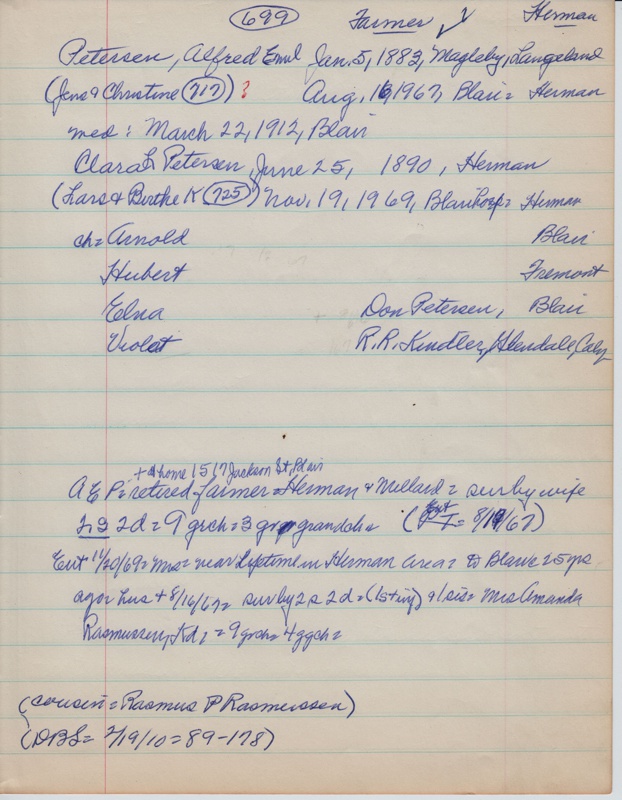 699 Farmer ✓ Herman
Petersen, Alfred Emil Jan. 5, 1883, Magleby, Langeland
(Jens & Christine (717)) ? Aug. 16, 1967, Blair = Herman
med: March 22, 1912, Blair
Clara L Petersen, June 25, 1890, Herman
(Lars & Birthe K (725)) Nov. 19, 1969, Blair hosp = Herman
ch = Arnold Blair
Hubert Fremont
Edna Don Petersen, Blair
Violet R. R. Kindler, Glendale, Caly
+ @ home 1517 Jackson St, Blair
A E P = retired farmer = Herman & Millard = sur by wife
2 s 2d = 9 grch = 3 gr grandch = (Ent = 8/19/67)
Ent 11/20/69 = Mrs = near lifetime in Herman area = to Blair 25 yrs
ago = hus + 8/16/67 = sur by 2 s 2d = & 1 sis = Mrs Amanda
Rasmussen, Kd = = 9 grch = 4 ggch =
(cousin = Rasmus P Rasmussen)
(DBL = 2/19/10 = 89-178)